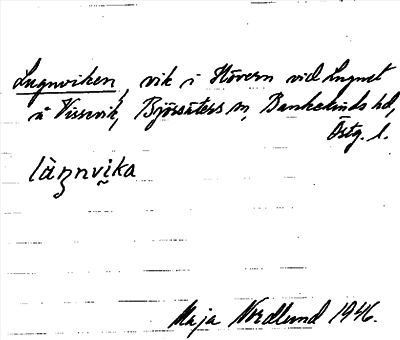 Lugnviken, vik i Hövern vid Lugnet
å Vissvik, Björsäters sn, Bankekinds hd,
Östg. l.
làŋnvika
Maja Nordlund 1946.